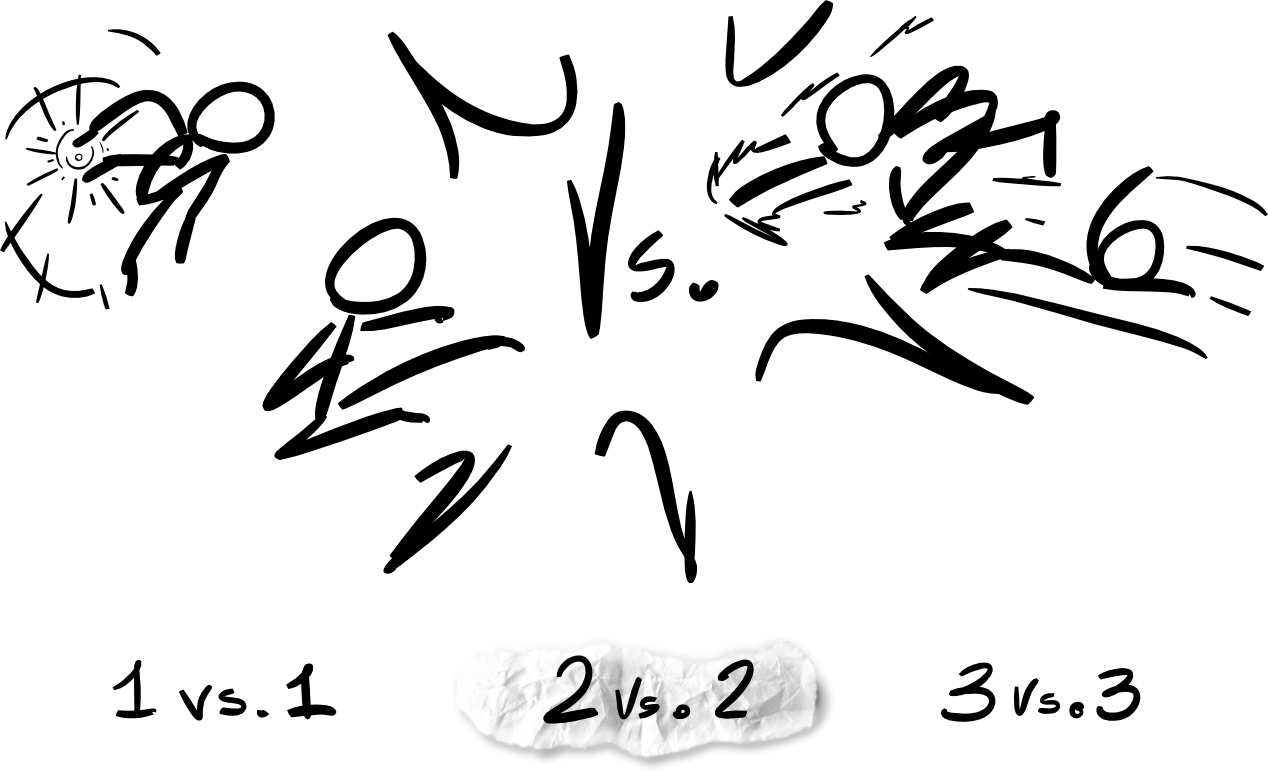 Vs.
1 vs. 1 2 vs. 2 3 vs. 3